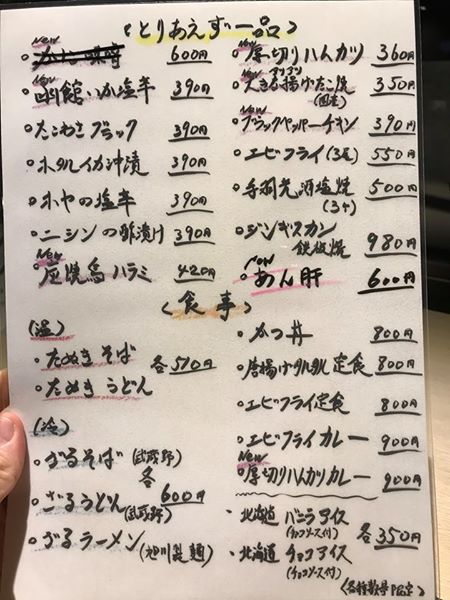 〈とりあえず一品〉
New
600円
New
・函館いか塩辛 390円
・たこわさブラック 390円
・ホタルイカ沖漬 390円
・ホヤの塩辛 390円
・ニシンの酢漬け 390円
New
・座焼鳥ハラミ 420円
New
・厚切りハムカツ 360円
New
・大きな揚げたこ焼 350円
(国産)
New
・ブラックペッパーチキン 390円
・エビフライ(3尾) 550円
・手羽先酒塩焼 500円
(3ケ)
・ジンギスカン
鉄板焼 980円
New
・あん肝 600円
〈食事〉
(温)
・たぬきそば
各510円
・たぬきうどん
(冷)
・ざるそば(武蔵野)
各
600円
・ざるうどん
(武蔵野)
・ざるラーメン(旭川製麺)
・かつ丼 800円
・唐揚げタルタル定食 800円
・エビフライ定食 800円
・エビフライカレー 900円
New
・厚切りハムカツカレー 900円
・北海道 バニラアイス
(チョコソース付)
各350円
・北海道 チョコアイス
(チョコソース付)
〈各種数量限定〉